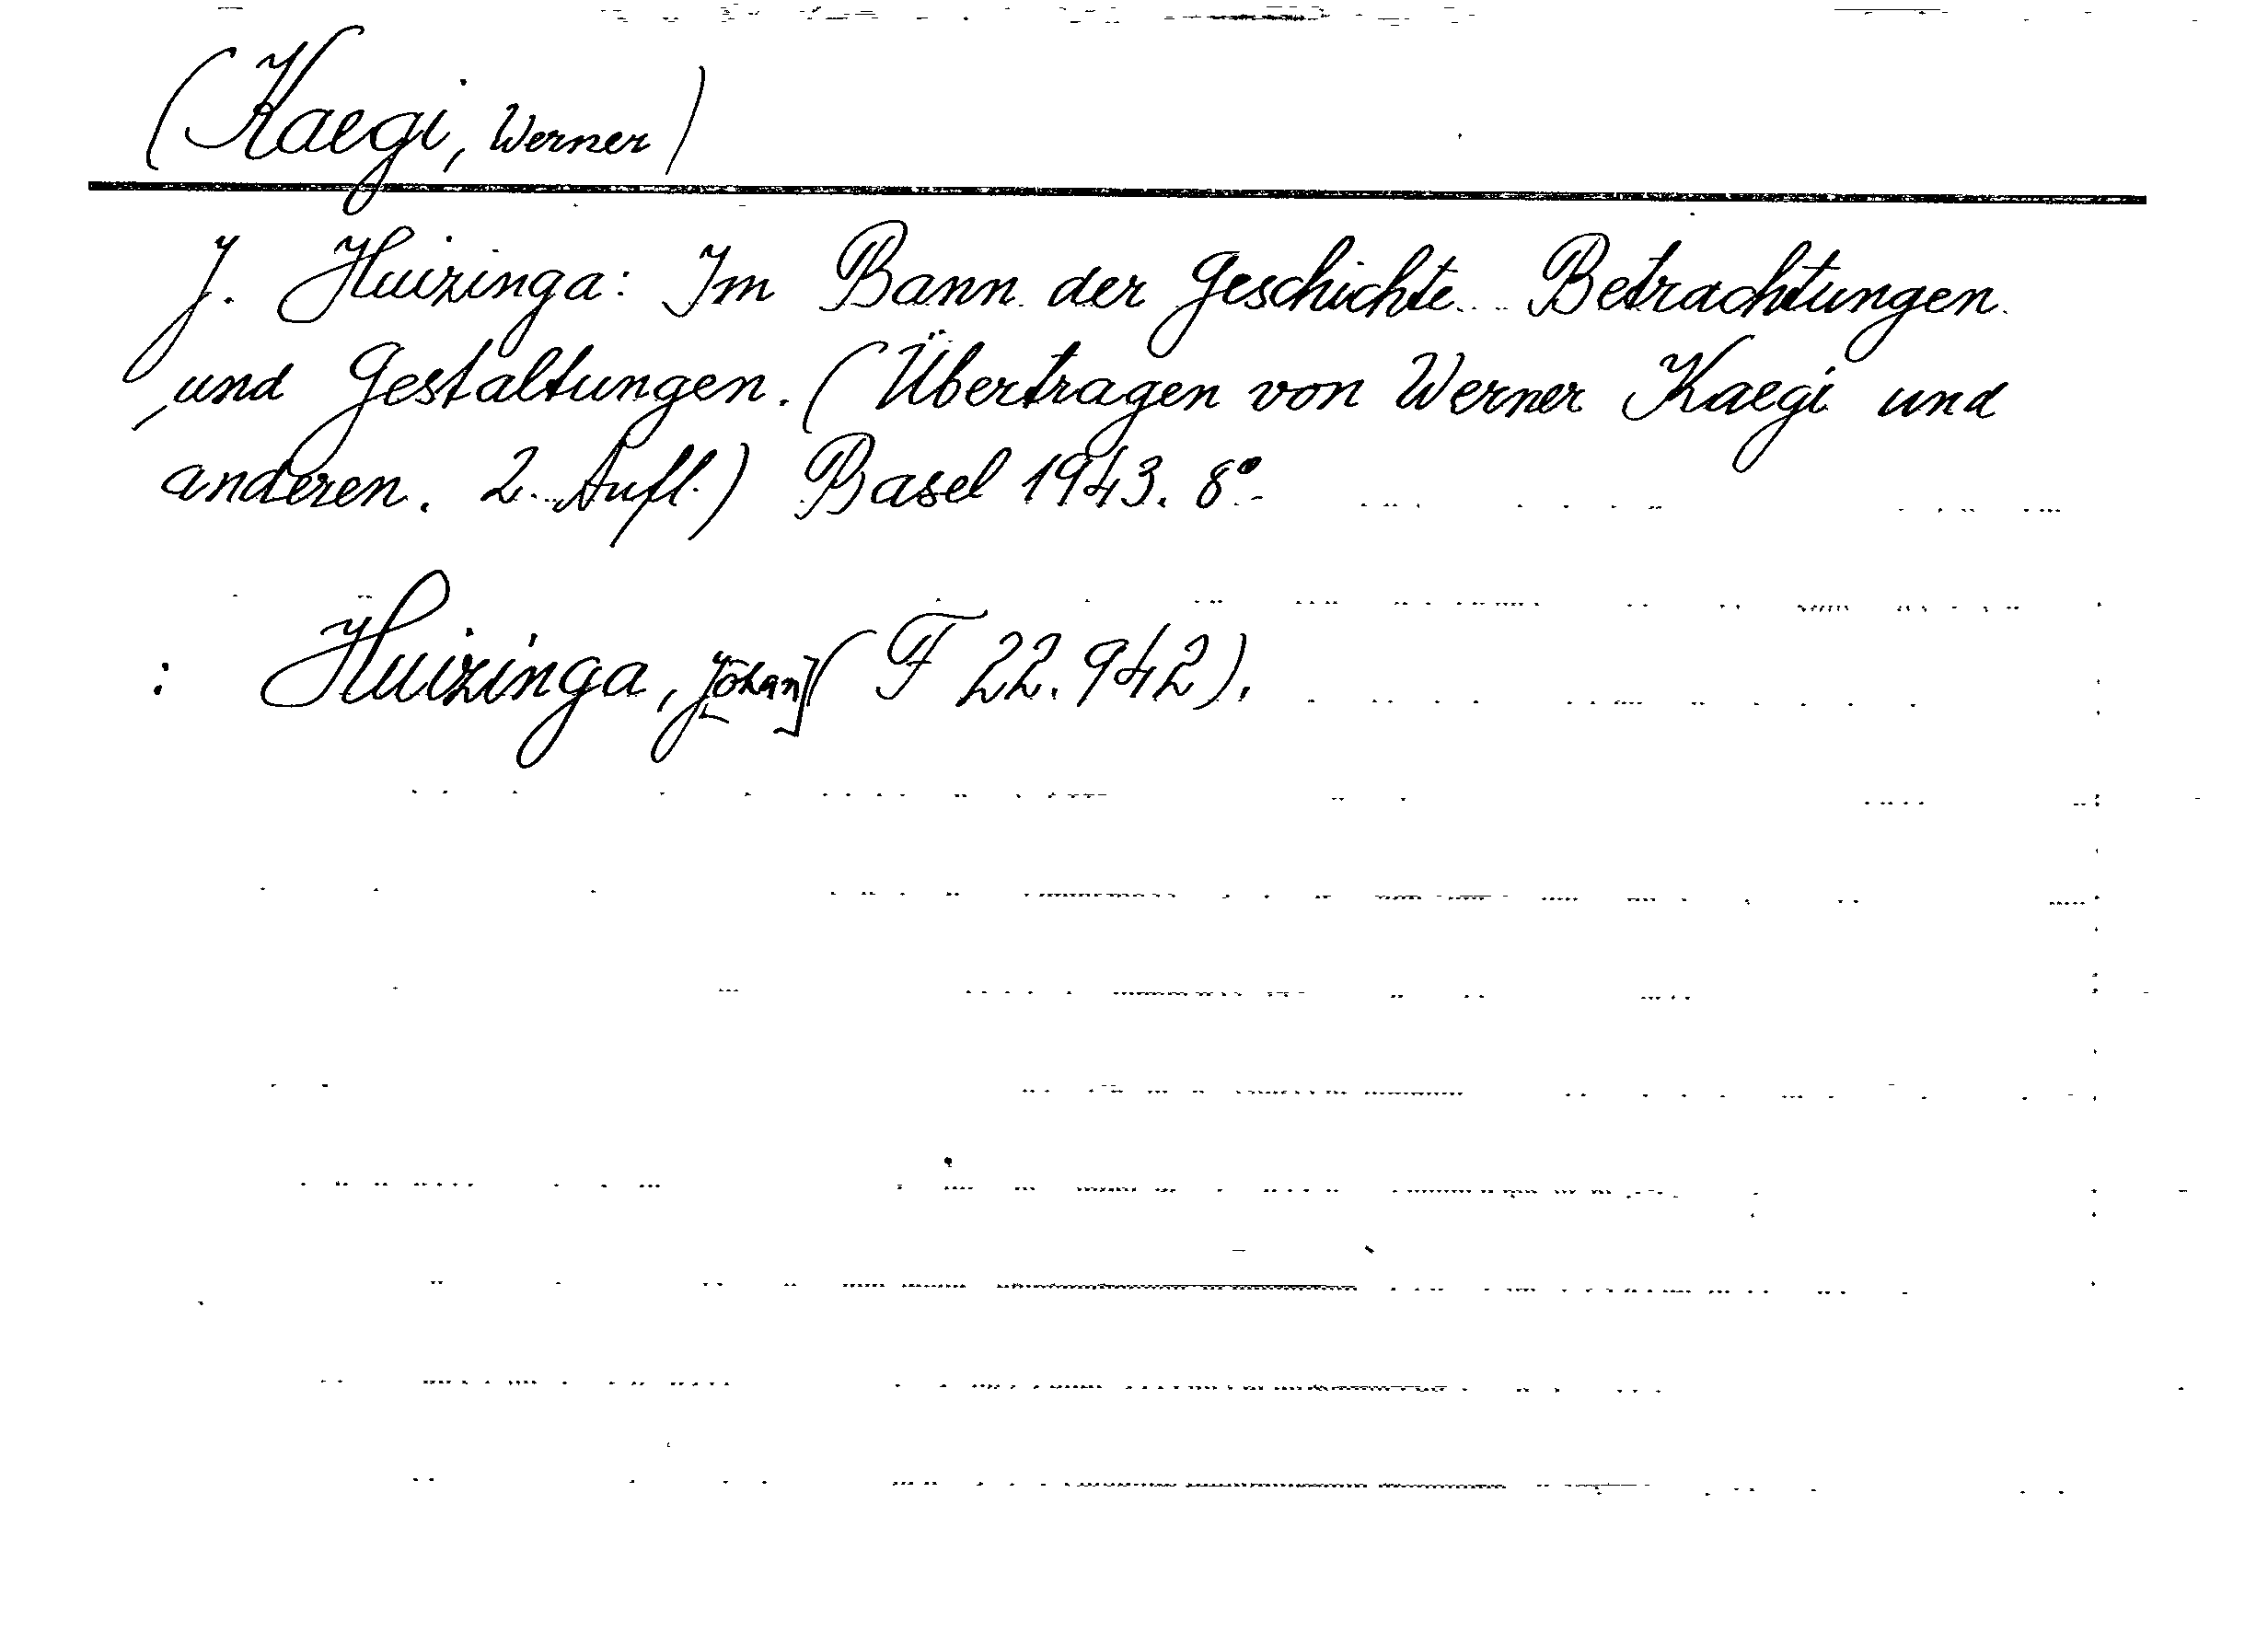 (Kaegi, Werner)
J. Huizinga: Im Bann der Geschichte. Betrachtungen
und Gestaltungen. (Übertragen von Werner Kaegi und
anderen. 2. Aufl.) Basel 1943. 8°.
: Huizinga, J[ohan] (F 22.942).